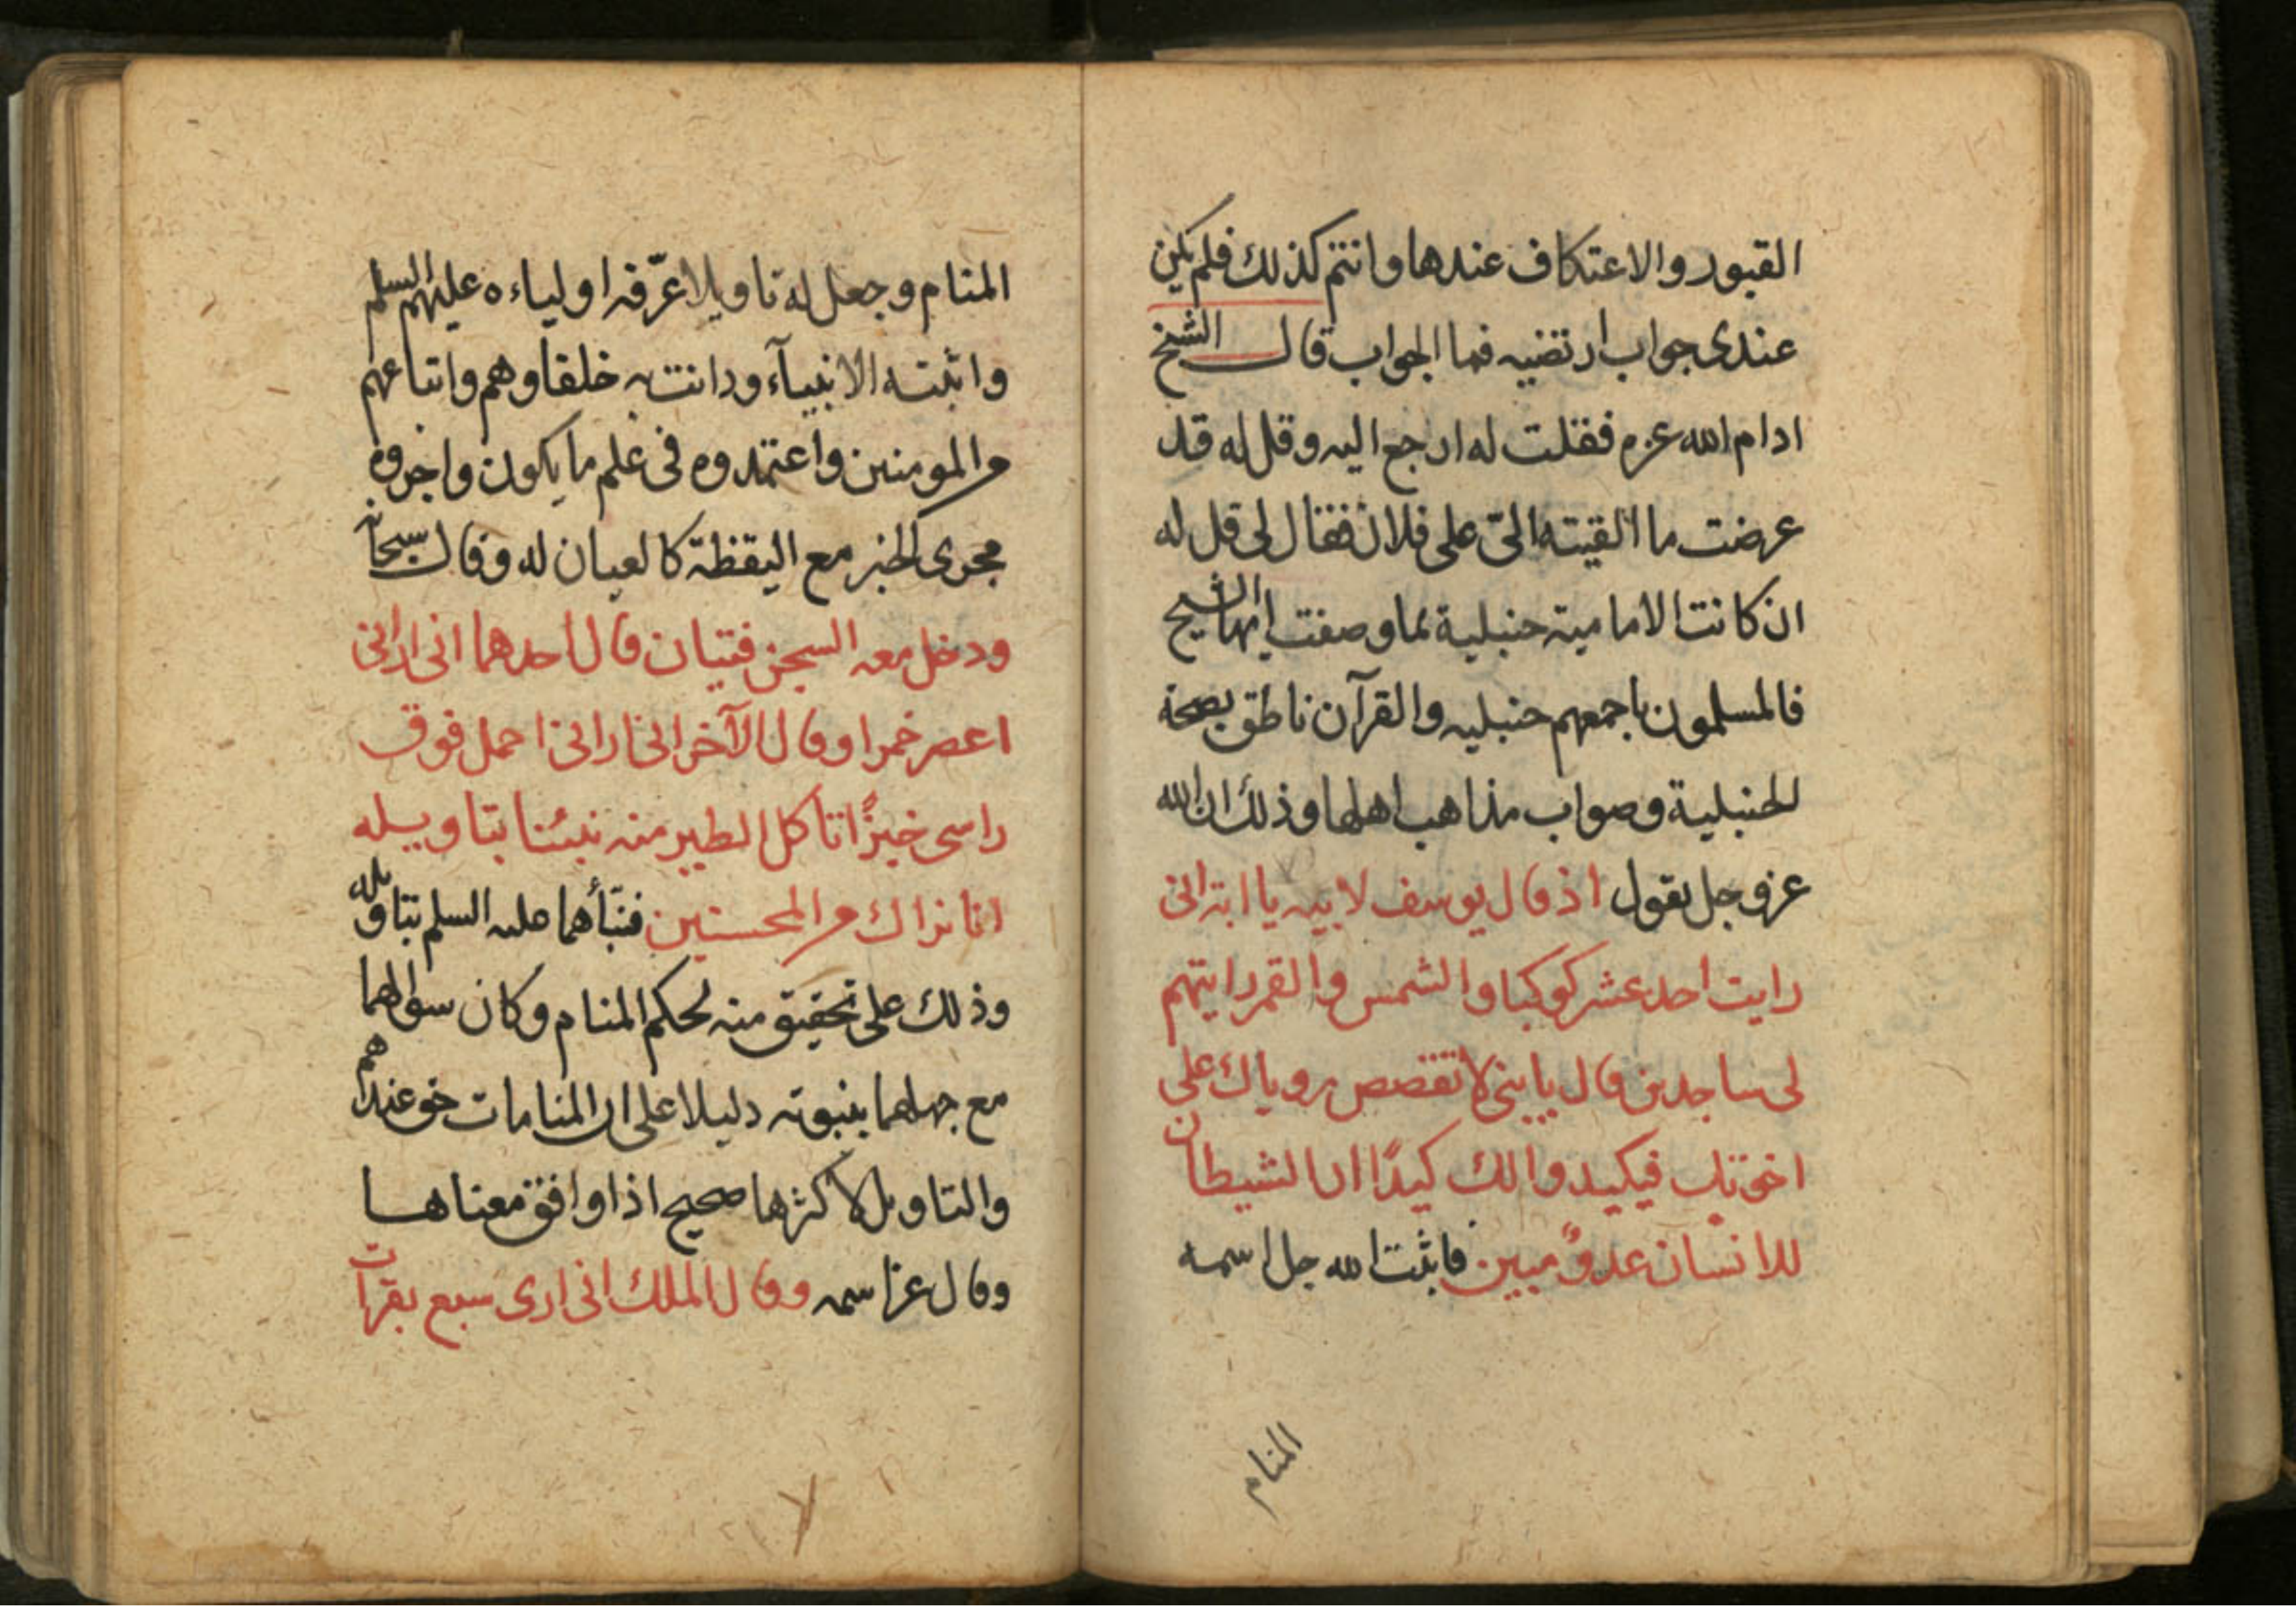 القبور والاعتكاف عندها وانتم كذلك فلم يكن
عندى جواب ارتضيه فما الجواب قال الشيخ
ادام الله عزه فقلت له ارجع اليه وقل له قد
عرضت ما القيته الىّ على فلان فقال لى قل له
ان كانت الامامية حنبلية بما وصفت ايها الشيخ
فالمسلمون باجمعهم حنبليه والقرآن ناطق بصحة
الحنبلية وصواب مذاهب اهلها وذلك ان الله
عز وجل يقول اذ قال يوسف لابيه يا ابت انى
رايت احد عشر كوكبا والشمس والقمر رايتهم
لى ساجدين قال يا بنى لا تقصص روياك على
اخوتك فيكيدوا لك كيدًا ان الشيطان
للانسان عدوٌ مبين فاثبت الله جل اسمه
المنام
المنام وجعل له تاويلا عرّفه اولياءه عليهم السلم
واثبته الانبيآء ودانت به خلفاوهم واتباعهم
من المومنين واعتمدوه فى علم ما يكون واجروه
مجرى الخبر مع اليقظة كالعيان له وقال سبحانه
ودخل معه السجن فتيان قال احدهما انى ارانى
اعصر خمرا وقال الآخر انى ارانى احمل فوق
راسى خبزًا تاكل الطير منه نبئنا بتاويله
انا نراك من المحسنين فنبّأهما عليه السلم بتاويله
وذلك على تحقيق منه لحكم المنام وكان سوالهما
مع جهلهما بنبوته دليلا على ان المنامات حق عندهم
والتاويل لاكثرها صحيح اذا وافق معناها
وقال عز اسمه وقال الملك انى ارى سبع بقرات